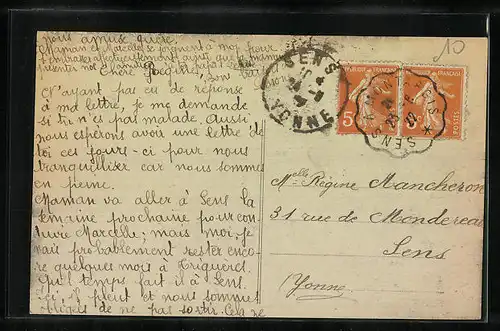 nous amuse guère.
Maman et Marcelle se joignent à moi pour
t'embrasser affectueusement ainsi que
Chère Régine,
N'ayant pas eu de réponse
à ma lettre, je me demande
si tu n'es pas malade. Aussi
nous espérons avoir une lettre de
toi ces jours-ci pour nous
tranquilliser car nous sommes
en peine.
Maman va aller à Sens la
semaine prochaine pour con-
duire Marcelle; mais moi, je
vais probablement rester enco-
re quelques mois à Triguères.
Quel temps fait il à Sens.
Ici, il pleut et nous sommes
obligés de ne pas sortir. Cela ne
SENS
YONNE
5
POSTES
SENS
10
Melle Régine Mancheron
31 rue de
Sens
(Yonne)